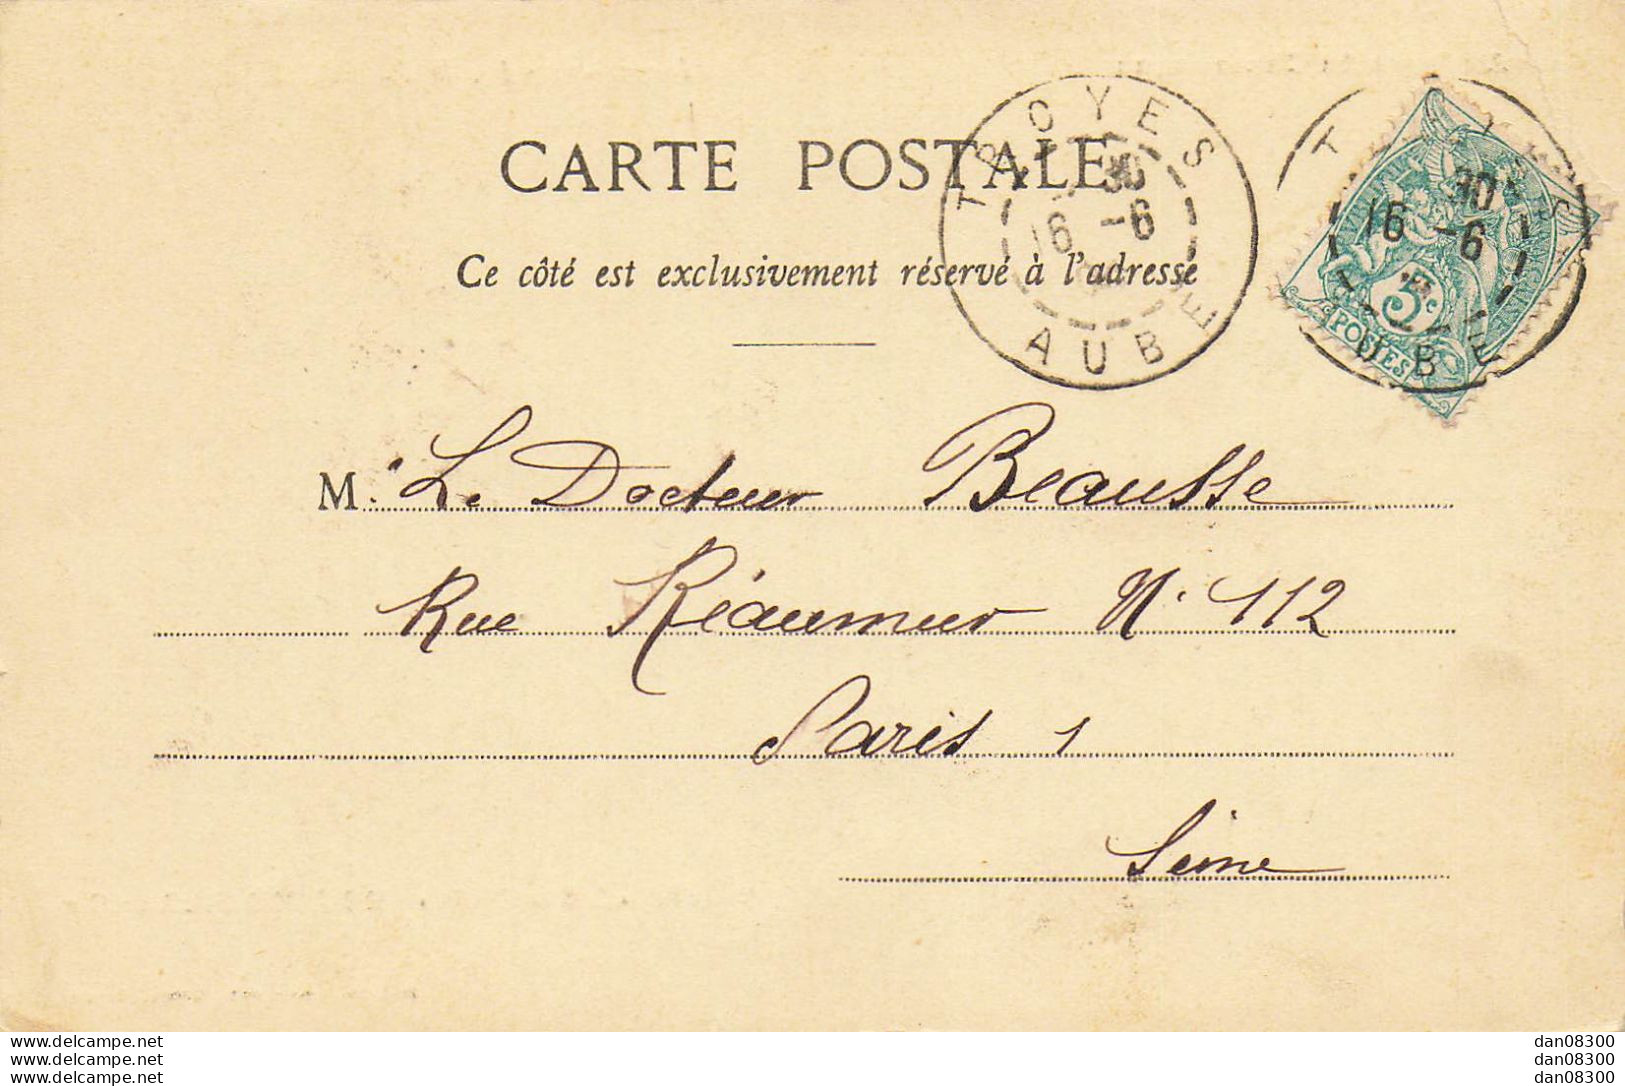 CARTE POSTALE
Ce côté est exclusivement réservé à l'adresse
TROYES
30
16 -6
AUBE
30
16 -6
5c
POSTES
UBE
M. Le Docteur Beausse
Rue Réaumur N. 112
Paris 1
Seine
www.delcampe.net
www.delcampe.net
www.delcampe.net
dan08300
dan08300
dan08300